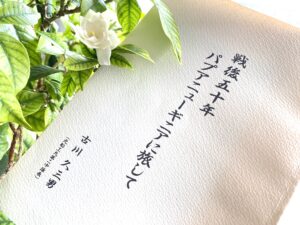 戦後五十年
パプアニューギニアに旅して
古川久三男